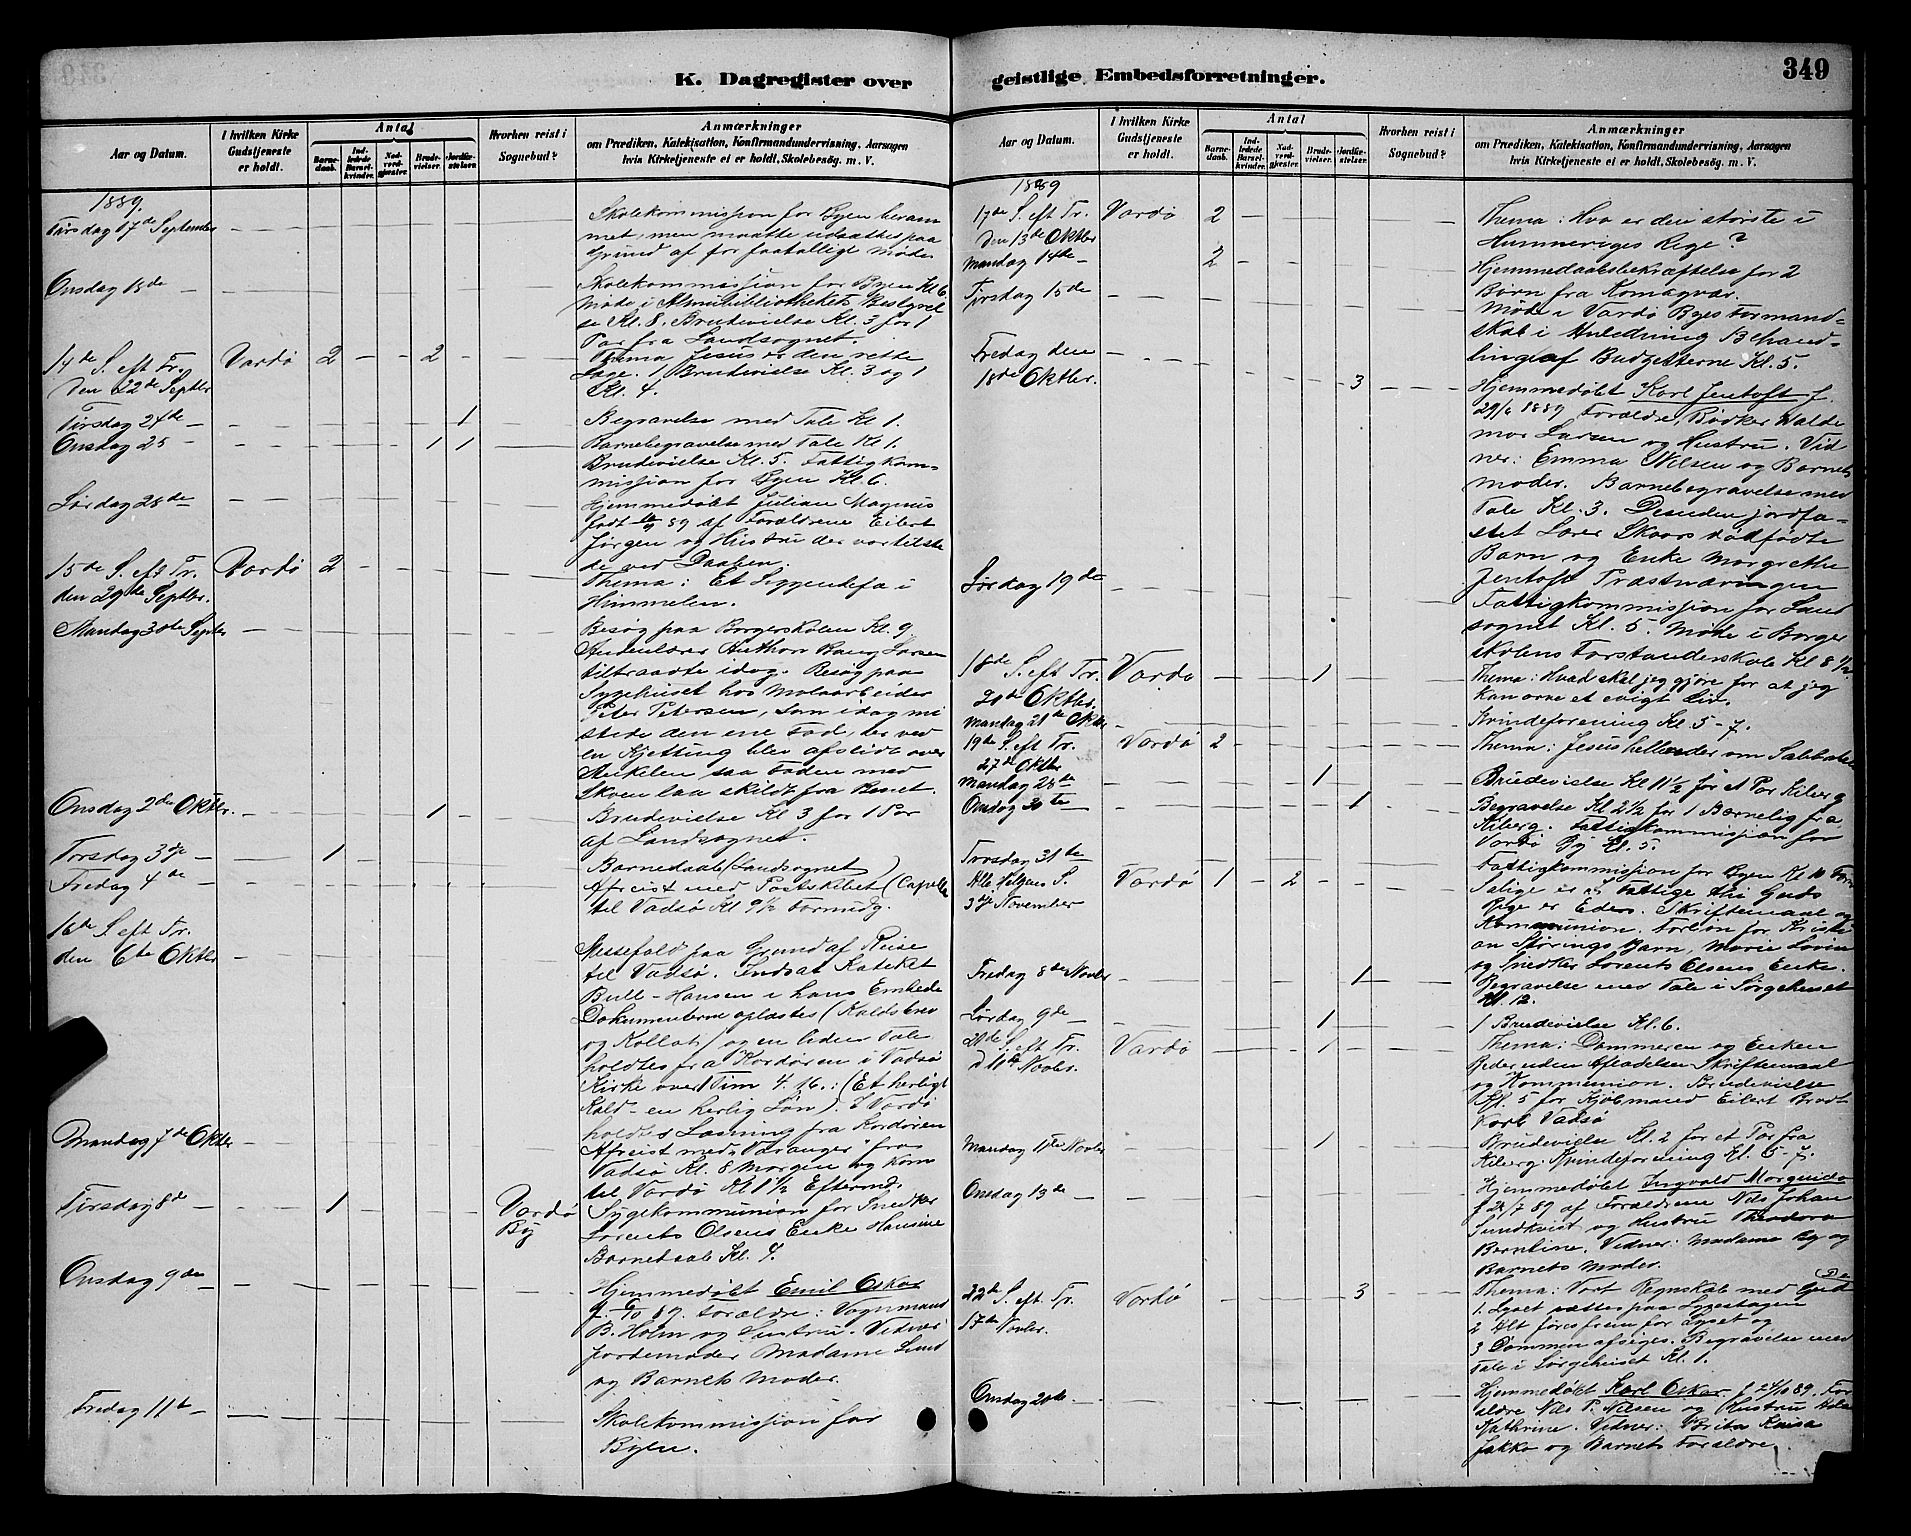 K. Dagregister over geistlige Embedsforretninger.
349
Aar og Datum.
I hvilken Kirke Gudstjeneste er holdt.
Antal
Barne-daab.
Ind-ledede Barsel-kvinder.
Nad-verd-gjester.
Brude-vielser.
Jordfæ-stelser.
Hvorhen reist i Sognebud?
Anmærkninger
om Prædiken, Katekisation, Konfirmandundervisning, Aarsagen
hvis Kirketjeneste ei er holdt, Skolebesøg. m. V.
1889.
Tirsdag 17de September
Skolekommission for Byen beram
met, men maatte udsættes paa
Grund af for faatalligt Møde
Onsdag 18de
Skolekommission for Byen Kl 6.
Møde i Bestyrel
se Kl. 8. Brudevielse Kl. 3 for 1
Par fra Landsognet.
14de S. eft Tr. Vardø 2 - - 2 -
den 22de Septbr
Thema Jesus er den rette
Læge. 1 Brudevielse Kl. 3 og 1
Kl. 4.
Tirsdag 24de 1
Begravelse med Tale Kl 1.
Onsdag 25 1 1
Barnebegravelse med Tale Kl 1.
Brudevielse Kl. 5. Fattigkom-
mission for Byen Kl 6.
Lørdag 28de
Hjemmedøbt Julian Magnus
født 89 af Forældrene Eilert
Jørgen og Hustru der var tilste
de ved Daaben.
15de S. eft Tr. Vardø 2
den 29de Septbr.
Thema: Et Liggendefæ i
Himmelen.
Mandag 30te Septbr
Besøg paa Borgerskolen Kl. 9
Andenlærer Anthon Bang Larsen
tiltraadte idag. Besøg paa
Sygehuset hos Moloarbeider
Peter Petersen, som idag mi
stede den ene Fod, der ved
en Kjetting blev afslidt over
Ankelen saa Foden med
Skoen laa skildt fra Benet.
Onsdag 2den Oktbr. 1
Brudevielse Kl 3 for 1 Par
af Landsognet.
Torsdag 3dje 1
Barnedaab (Landsognet)
Fredag 4de
Afreist med Postskibet (Capella
til Vadsø Kl 9½ Formidg.
16de S. eft Tr.
den 6te Oktbr
Messefald paa Grund af Reise
til Vadsø. Indsat Kateket
Bull-Hansen i hans Embede
Dokumenterne oplæstes (Kaldsbrev
og Kollats) og en liden Tale
holdtes fra Kordøren i Vadsø
Kirke over 1 Tim 4. 16.: (Et herligt
Kald - en herlig Løn). I Vardø
holdtes Læsning fra Kordøren
Mandag 7de Oktbr
Afreist med "Varanger" fra
Vadsø Kl. 8 Morgen og kom
til Vardø Kl 1½ Efterm.
Tirsdag 8de 1 Vardø By
Sygekommunion for Snedker
Lorents Olsens Enke Hansine
Barnedaab Kl. 4.
Onsdag 9de
Hjemmedøbt Emil Oskar
f. 6/10 89. Forældre: Vognmand
B. Holm og Hustru. Vidner
Jordemoder Madame Lund
og Barnets Moder.
Fredag 11te
Skolekommission for
Byen.
Aar og Datum.
I hvilken Kirke Gudstjeneste er holdt.
Antal
Barne-daab.
Ind-ledede Barsel-kvinder.
Nad-verd-gjester.
Brude-vielser.
Jordfæ-stelser.
Hvorhen reist i Sognebud?
Anmærkninger
om Prædiken, Katekisation, Konfirmandundervisning, Aarsagen
hvis Kirketjeneste ei er holdt, Skolebesøg. m. V.
1889
17de S. eft Tr. Vardø 2 -
Den 13de Oktbr
Thema: Hvo er den største i
Himmeriges Rige?
Mandag 14de 2
Hjemmedaabsbekræftelse for 2
Børn fra Komagvær.
Tirsdag 15de
Møde i Vardø Byes Formand-
skab i Anledning Behand-
ling af Budgetterne Kl. 5.
Fredag den
18de Oktbr. 3
Hjemmedøbt Karl Jentoft f.
29/6 1889 Forældre, Bødker Walde
mar Larsen og Hustru. Vid
ner: Emma Nilsen og Barnets
moder. Barnebegravelse med
Tale Kl. 3. Desuden jordfæ-
stet Lars Skaars dødfødte
Barn og Enke Margrethe
Jentoft Præstnæringen
Lørdag 19de
Fattigkommission for Land
sognet Kl. 5. Møde i Borger
skolens Forstanderskab Kl 8 ½
18de S. eft Tr. Vardø 1
20de Oktbr.
Thema: Hvad skal jeg gjøre for at jeg
kan arve et evigt Liv.
Mandag 21de Oktbr
Kvindeforening Kl. 5-7.
19de S. eft Tr. Vardø 2
27de Oktbr
Thema: Jesus helbreder om Sabbaten
Mandag 28de 1
Brudevielse Kl 11½ for et Par Kiberg
Onsdag 30te 1
Begravelse Kl 2½ for 1 Barnelig fra
Kiberg. Fattigkommission for
Vardø By Kl. 5.
Torsdag 31te
Fattigkommission for Byen Kl 10 Form
Alle Helgens S. Vardø 1 - 2
3dje November
Salige er I Fattige thi Guds
Rige er Eders. Skriftemaal og
Kommunion. Forbøn for Kristi
an Størings Barn, Marie Lovise
og Snedker Lorents Olsens Enke.
Fredag 8de Novbr 1
Begravelse med Tale i Sørgehuset
Kl. 12.
Lørdag 9de 1
1 Brudevielse Kl. 6.
21de S. eft Tr. Vardø 1
d 10de Novbr.
Thema: Dommeren og Enken
Beder uden Afladelse. Skriftemaal
og Kommunion. Brudevielse
Kl. 5 for Kjøbmand Eilert Brodt
korb Vadsø
Mandag 11te Novbr 1
Brudevielse Kl. 2 for et Par fra
Kiberg. Kvindeforening Kl. 5-7.
Onsdag 13de
Hjemmedøbt Ingvald Morguido
f 21/7 89 af Forældrene Nils Johan
Sundkvist og Hustru Theodora
Berntine. Vidner: Madame By og
Barnets Moder.
22de S. eft Tr. Vardø 3
17de Novbr.
Thema: Vort Regnskab med Gud
1. Lyset sættes paa Lysestagen
2 Alt føres frem for Lyset og
3 Dommen afsiges. Begravelse med
Tale i Sørgehuset Kl. 1.
Onsdag 20de
Hjemmedøbt Karl Oskar f 24/10 89. For
ældre Nils P. Nilsen og Hustru
Kathrine. Vidner: Brita Kaisa
Jakko og Barnets Forældre